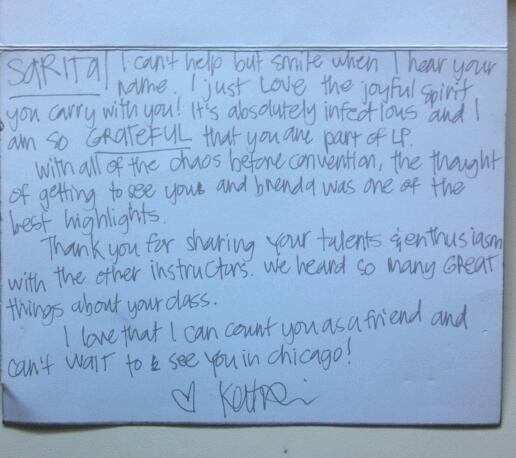 SARITA! I can't help but smile when I hear your
name. I just LOVE the joyful spirit
you carry with you! It's absolutely infectious and I
am so GRATEFUL that you are part of LP.
With all of the chaos before convention, the thought
of getting to see you and brenda was one of the
best highlights.
Thank you for sharing your talents & enthusiasm
with the other instructors. We heard so many GREAT
things about your class.
I love that I can count you as a friend and
can't WAIT to see you in chicago!
♡